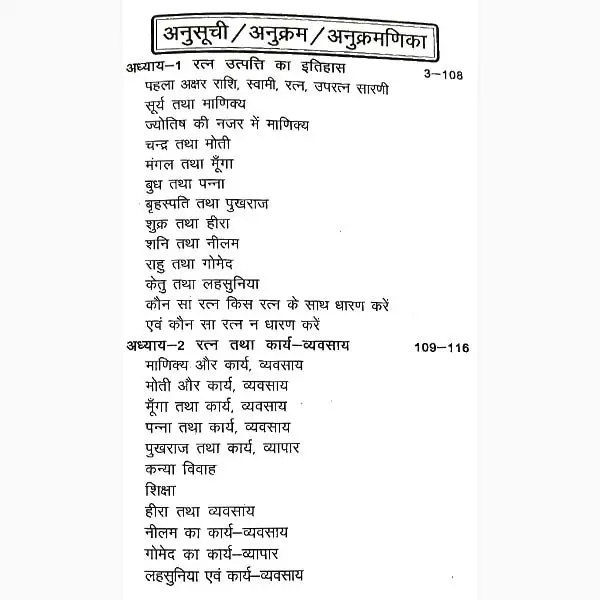 अनुसूची/अनुक्रम/अनुक्रमणिका
अध्याय–1 रत्न उत्पत्ति का इतिहास 3–108
पहला अक्षर राशि, स्वामी, रत्न, उपरत्न सारणी
सूर्य तथा माणिक्य
ज्योतिष की नजर में माणिक्य
चन्द्र तथा मोती
मंगल तथा मूँगा
बुध तथा पन्ना
बृहस्पति तथा पुखराज
शुक्र तथा हीरा
शनि तथा नीलम
राहु तथा गोमेद
केतु तथा लहसुनिया
कौन सा रत्न किस रत्न के साथ धारण करें
एवं कौन सा रत्न न धारण करें
अध्याय–2 रत्न तथा कार्य–व्यवसाय 109–116
माणिक्य और कार्य, व्यवसाय
मोती और कार्य, व्यवसाय
मूँगा तथा कार्य, व्यवसाय
पन्ना तथा कार्य, व्यवसाय
पुखराज तथा कार्य, व्यापार
कन्या विवाह
शिक्षा
हीरा तथा व्यवसाय
नीलम का कार्य–व्यवसाय
गोमेद का कार्य–व्यापार
लहसुनिया एवं कार्य–व्यवसाय